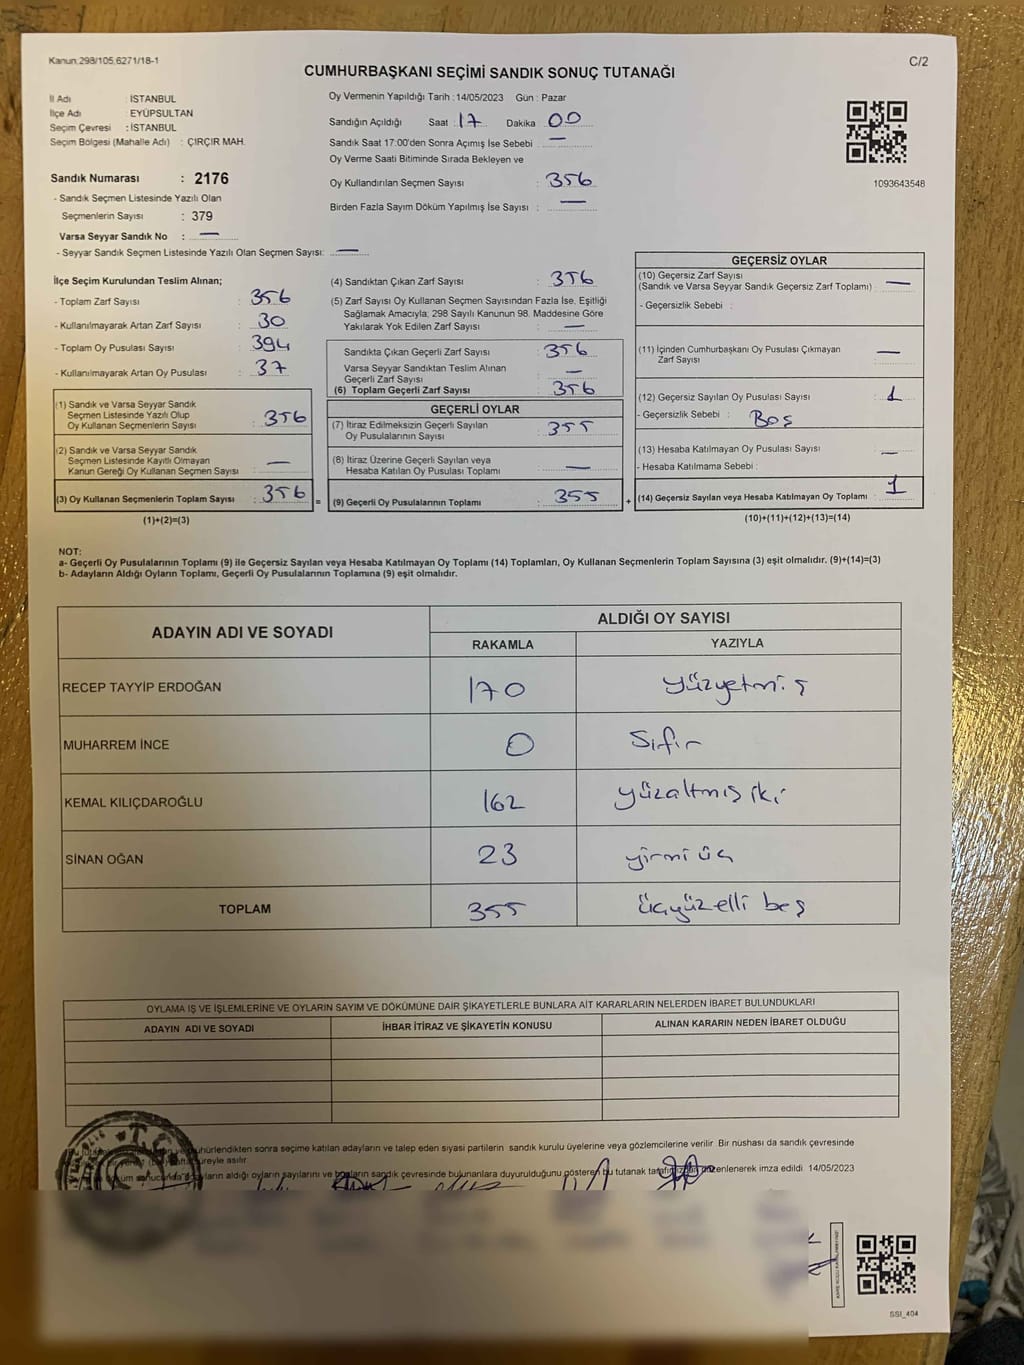 Kanun.298/105,6271/18-1
C/2
CUMHURBAŞKANI SEÇİMİ SANDIK SONUÇ TUTANAĞI
İl Adı : İSTANBUL
İlçe Adı : EYÜPSULTAN
Seçim Çevresi : İSTANBUL
Seçim Bölgesi (Mahalle Adı) : ÇIRÇIR MAH.
Sandık Numarası : 2176
- Sandık Seçmen Listesinde Yazılı Olan
Seçmenlerin Sayısı : 379
Varsa Seyyar Sandık No : —
- Seyyar Sandık Seçmen Listesinde Yazılı Olan Seçmen Sayısı: —
Oy Vermenin Yapıldığı Tarih : 14/05/2023 Gün : Pazar
Sandığın Açıldığı Saat : 17 Dakika : 00
Sandık Saat 17:00'den Sonra Açımış İse Sebebi : —
Oy Verme Saati Bitiminde Sırada Bekleyen ve
Oy Kullandırılan Seçmen Sayısı : 356
Birden Fazla Sayım Döküm Yapılmış İse Sayısı : —
1093643548
İlçe Seçim Kurulundan Teslim Alınan;
- Toplam Zarf Sayısı : 356
- Kullanılmayarak Artan Zarf Sayısı : 30
- Toplam Oy Pusulası Sayısı : 394
- Kullanılmayarak Artan Oy Pusulası : 37
(1) Sandık ve Varsa Seyyar Sandık
Seçmen Listesinde Yazılı Olup
Oy Kullanan Seçmenlerin Sayısı : 356
(2) Sandık ve Varsa Seyyar Sandık
Seçmen Listesinde Kayıtlı Olmayan
Kanun Gereği Oy Kullanan Seçmen Sayısı : —
(3) Oy Kullanan Seçmenlerin Toplam Sayısı : 356 =
(1)+(2)=(3)
(4) Sandıktan Çıkan Zarf Sayısı : 356
(5) Zarf Sayısı Oy Kullanan Seçmen Sayısından Fazla İse, Eşitliği
Sağlamak Amacıyla; 298 Sayılı Kanunun 98. Maddesine Göre
Yakılarak Yok Edilen Zarf Sayısı : —
Sandıkta Çıkan Geçerli Zarf Sayısı : 356
Varsa Seyyar Sandıktan Teslim Alınan
Geçerli Zarf Sayısı : —
(6) Toplam Geçerli Zarf Sayısı : 356
GEÇERLİ OYLAR
(7) İtiraz Edilmeksizin Geçerli Sayılan
Oy Pusulalarının Sayısı : 355
(8) İtiraz Üzerine Geçerli Sayılan veya
Hesaba Katılan Oy Pusulası Toplamı : —
(9) Geçerli Oy Pusulalarının Toplamı : 355 +
GEÇERSİZ OYLAR
(10) Geçersiz Zarf Sayısı
(Sandık ve Varsa Seyyar Sandık Geçersiz Zarf Toplamı) : —
- Geçersizlik Sebebi :
(11) İçinden Cumhurbaşkanı Oy Pusulası Çıkmayan
Zarf Sayısı : —
(12) Geçersiz Sayılan Oy Pusulası Sayısı : 1
- Geçersizlik Sebebi : Boş
(13) Hesaba Katılmayan Oy Pusulası Sayısı : —
- Hesaba Katılmama Sebebi :
(14) Geçersiz Sayılan veya Hesaba Katılmayan Oy Toplamı : 1
(10)+(11)+(12)+(13)=(14)
NOT:
a- Geçerli Oy Pusulalarının Toplamı (9) ile Geçersiz Sayılan veya Hesaba Katılmayan Oy Toplamı (14) Toplamları, Oy Kullanan Seçmenlerin Toplam Sayısına (3) eşit olmalıdır. (9)+(14)=(3)
b- Adayların Aldığı Oyların Toplamı, Geçerli Oy Pusulalarının Toplamına (9) eşit olmalıdır.
ADAYIN ADI VE SOYADI
ALDIĞI OY SAYISI
RAKAMLA YAZIYLA
RECEP TAYYİP ERDOĞAN 170 Yüzyetmiş
MUHARREM İNCE 0 Sıfır
KEMAL KILIÇDAROĞLU 162 yüzaltmış iki
SİNAN OĞAN 23 yirmi üç
TOPLAM 355 üçyüzelli beş
OYLAMA İŞ VE İŞLEMLERİNE VE OYLARIN SAYIM VE DÖKÜMÜNE DAİR ŞİKAYETLERLE BUNLARA AİT KARARLARIN NELERDEN İBARET BULUNDUKLARI
ADAYIN ADI VE SOYADI İHBAR İTİRAZ VE ŞİKAYETİN KONUSU ALINAN KARARIN NEDEN İBARET OLDUĞU
sonra seçime katılan adayların ve talep eden siyasi partilerin sandık kurulu üyelerine veya gözlemcilerine verilir. Bir nüshası da sandık çevresinde
asılır.
aldığı oyların sayılarını ve sandık çevresinde bulunanlara duyurulduğunu gösteren bu tutanak düzenlenerek imza edildi. 14/05/2023
SSI_404